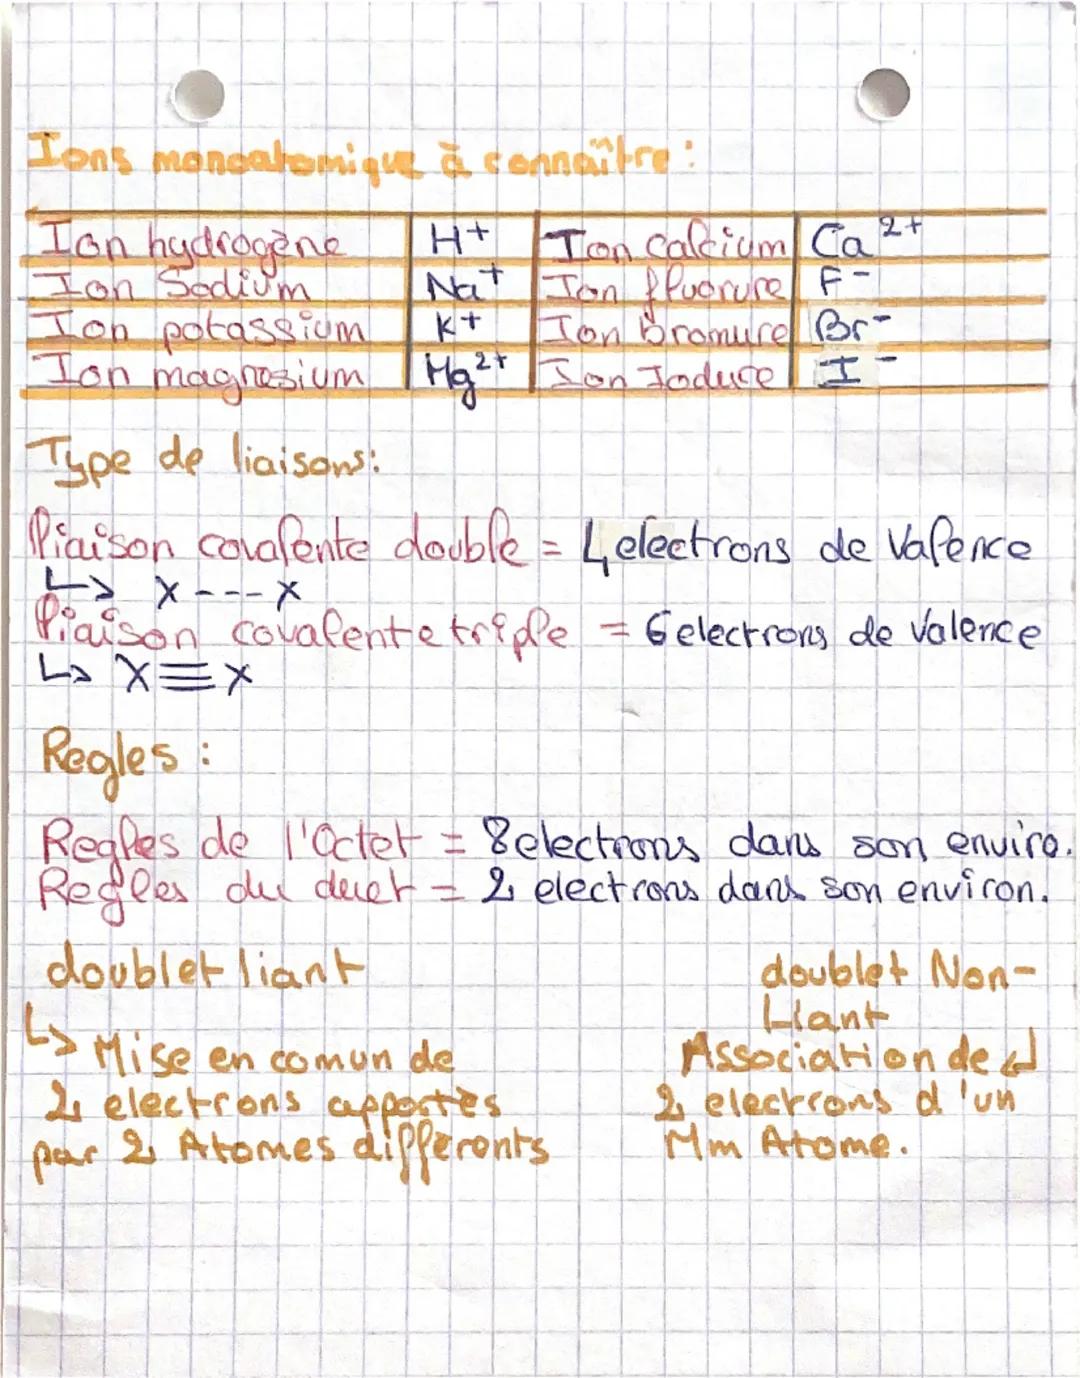 Ions monoatomique à connaître :
Ion hydrogène H+ Ion calcium Ca 2+
Ion Sodium Na+ Ion fluorure F-
Ion potassium K+ Ion bromure Br-
Ion magnesium Mg2+ Ion Iodure I-
Type de liaisons:
liaison covalente double = 4 electrons de valence
↳ X---X
liaison covalente triple = 6 electrons de valence
↳ X≡X
Regles :
Regles de l'Octet = 8 electrons dans son enviro.
Regles du duet = 2 electrons dans son environ.
doublet liant
↳ Mise en comun de
2 electrons apportès
par 2 Atomes differents
doublet Non-
Liant
Association de ↲
2 electrons d'un
Mm Atome.